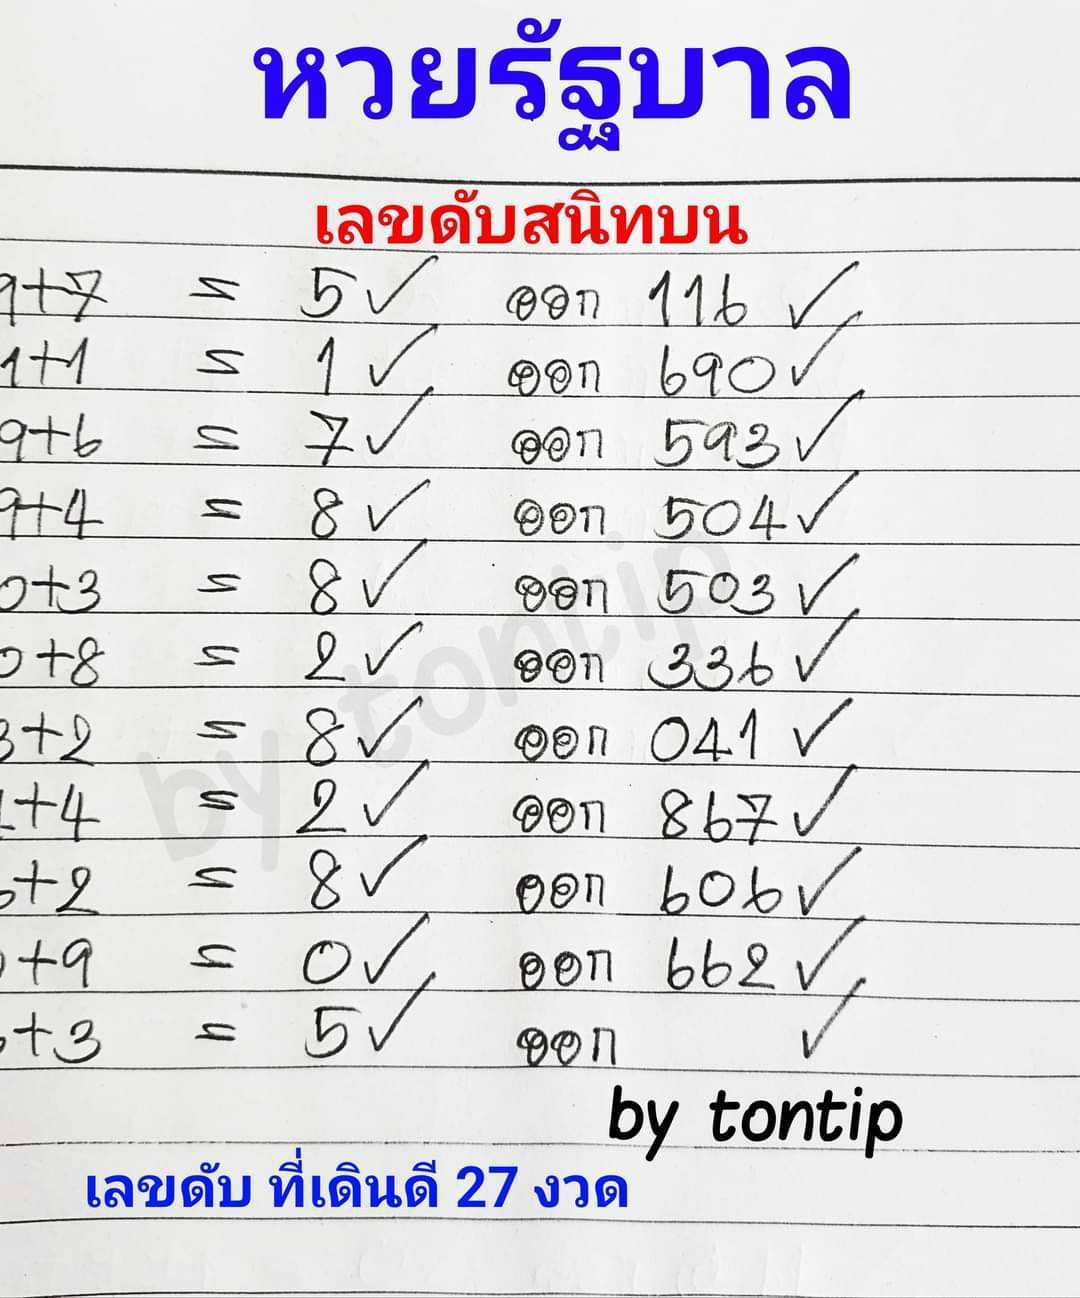 หวยรัฐบาล
เลขดับสนิทบน
9+7 = 5✓ ออก 116 ✓
1+1 = 1✓ ออก 690✓
9+6 = 7✓ ออก 593✓
9+4 = 8✓ ออก 504✓
0+3 = 8✓ ออก 503✓
+8 = 2✓ ออก 336✓
3+2 = 8✓ ออก 041✓
+4 = 2✓ ออก 867✓
+2 = 8✓ ออก 606✓
+9 = 0✓ ออก 662✓
+3 = 5✓ ออก ✓
by tontip
by tontip
เลขดับ ที่เดินดี 27 งวด